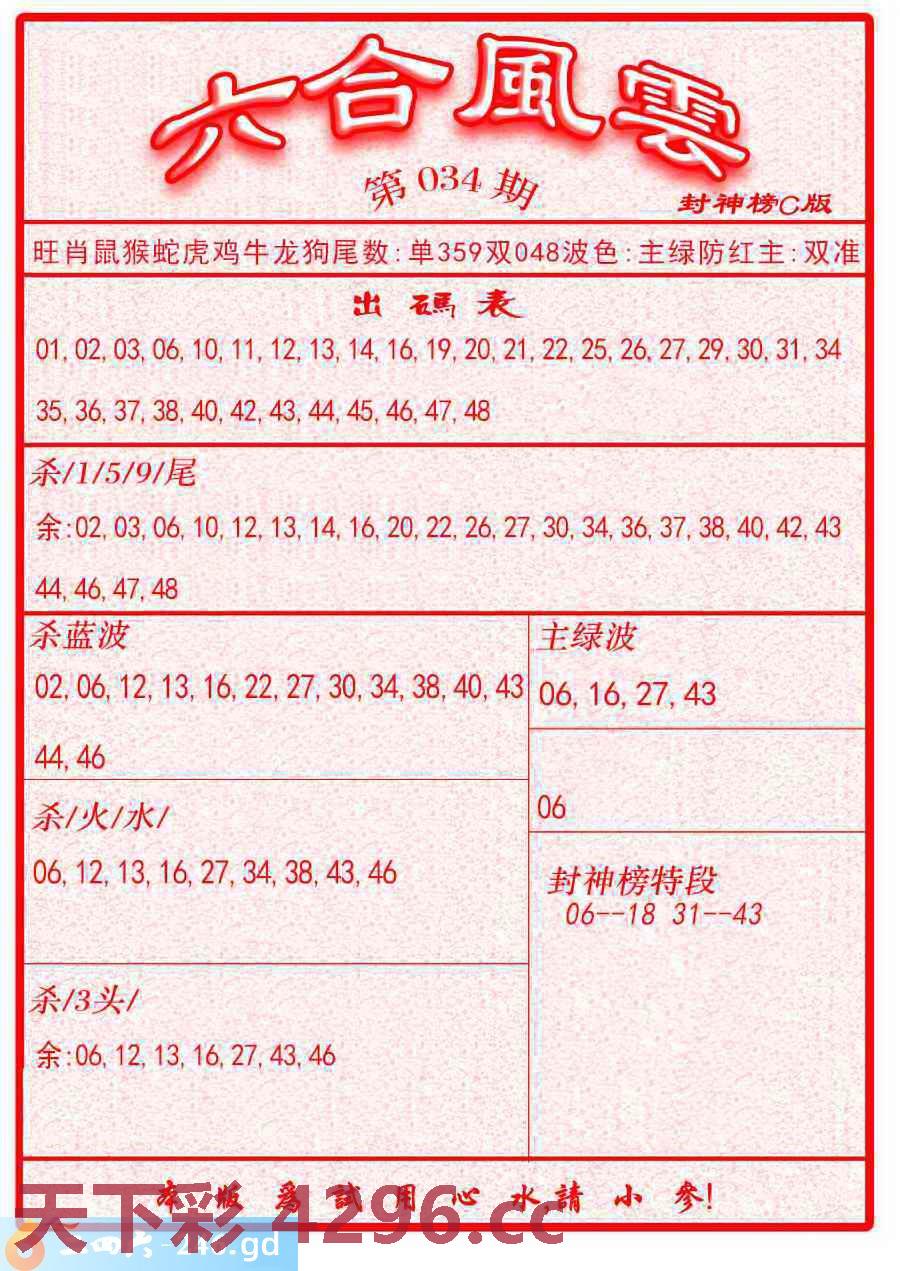 六合風雲
第034期
封神榜C版
旺肖鼠猴蛇虎鸡牛龙狗尾数:单359双048波色:主绿防红主:双准
出碼表
01,02,03,06,10,11,12,13,14,16,19,20,21,22,25,26,27,29,30,31,34
35,36,37,38,40,42,43,44,45,46,47,48
杀/1/5/9/尾
余:02,03,06,10,12,13,14,16,20,22,26,27,30,34,36,37,38,40,42,43
44,46,47,48
杀蓝波
02,06,12,13,16,22,27,30,34,38,40,43
44,46
主绿波
06,16,27,43
06
杀/火/水/
06,12,13,16,27,34,38,43,46
封神榜特段
06--18 31--43
杀/3头/
余:06,12,13,16,27,43,46
本版爲試用心水,請小參!
天下彩 4296.cc